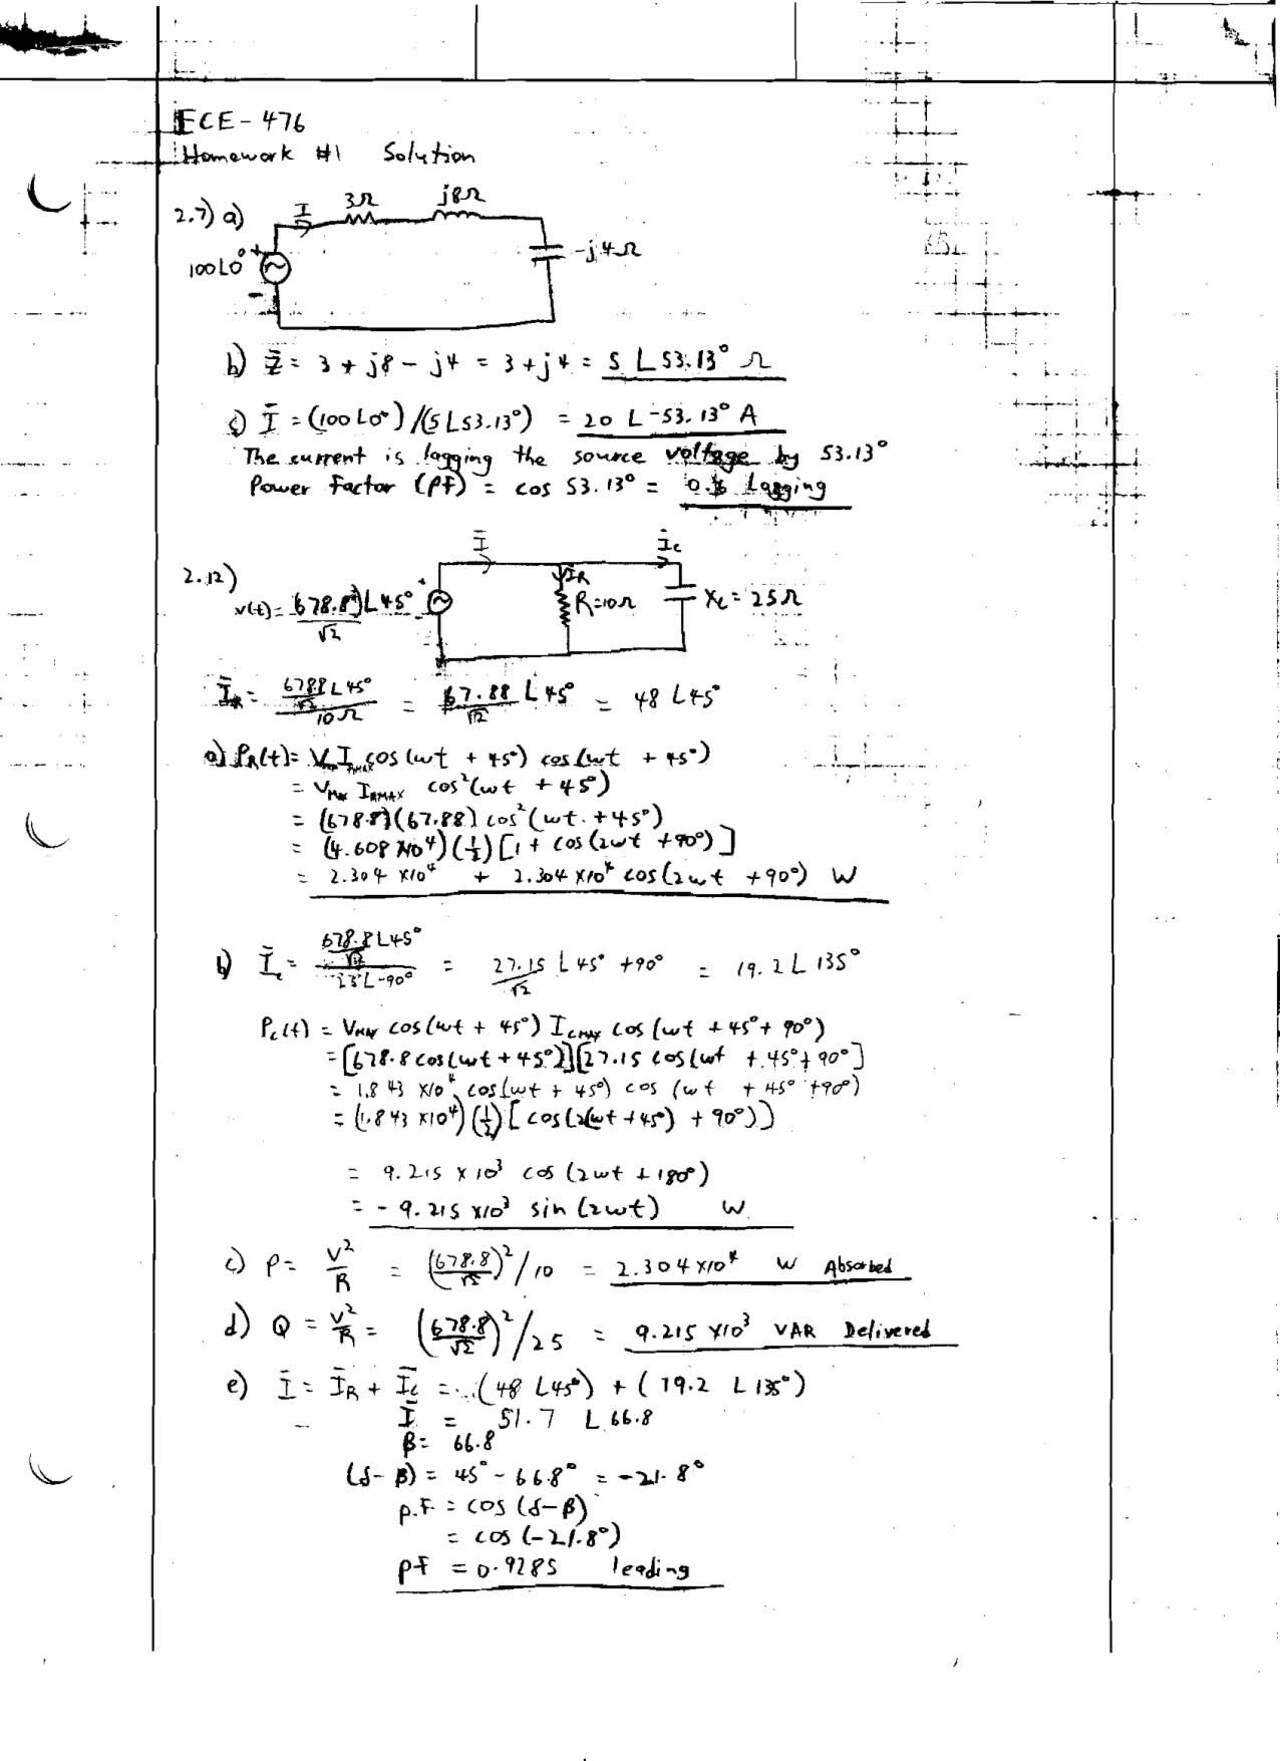 ECE-476
Homework #1 Solution
2.7) a) I 3Ω j8Ω
-j4Ω
100∠0° + -
b) Z̄ = 3 + j8 - j4 = 3 + j4 = 5∠53.13° Ω
c) Ī = (100∠0°)/(5∠53.13°) = 20∠-53.13° A
The current is lagging the source voltage by 53.13°
Power Factor (pf) = cos 53.13° = 0.6 Lagging
2.12) Ī Īc
v(t) = 678.8/√2 ∠45° + - IR R=10Ω Xc = 25Ω
ĪR = (678.8∠45°/√2)/10Ω = 67.88/√2 ∠45° = 48∠45°
a) PR(t) = Vmax IRMAX cos(ωt + 45°) cos(ωt + 45°)
= VMAX IRMAX cos²(ωt + 45°)
= (678.8)(67.88) cos²(ωt + 45°)
= (4.608 x10⁴)(1/2)[1 + cos(2ωt + 90°)]
= 2.304 x10⁴ + 2.304 x10⁴ cos(2ωt + 90°) W
b) Īc = (678.8∠45°/√2)/25∠-90° = 27.15/√2 ∠45° + 90° = 19.2∠135°
Pc(t) = VMAX cos(ωt + 45°) ICMAX cos(ωt + 45° + 90°)
= [678.8 cos(ωt + 45°)][27.15 cos(ωt + 45° + 90°]
= 1.843 x10⁴ cos(ωt + 45°) cos(ωt + 45° + 90°)
= (1.843 x10⁴)(1/2)[cos(2(ωt + 45°) + 90°)]
= 9.215 x 10³ cos(2ωt + 180°)
= -9.215 x10³ sin(2ωt) W
c) P = V²/R = (678.8/√2)²/10 = 2.304 x10⁴ W Absorbed
d) Q = V²/R = (678.8/√2)²/25 = 9.215 x10³ VAR Delivered
e) Ī = ĪR + Īc = (48∠45°) + (19.2∠135°)
Ī = 51.7∠66.8
β = 66.8
(δ-β) = 45° - 66.8° = -21.8°
p.F. = cos(δ-β)
= cos(-21.8°)
pf = 0.9285 leading